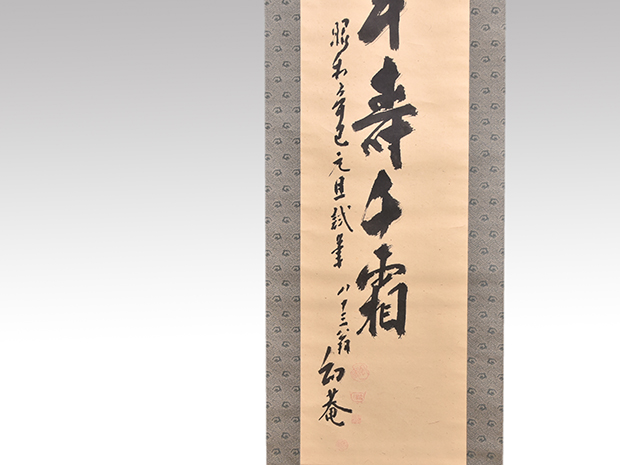 壽千霜
昭和辛巳元旦試筆 八十三翁 幻菴